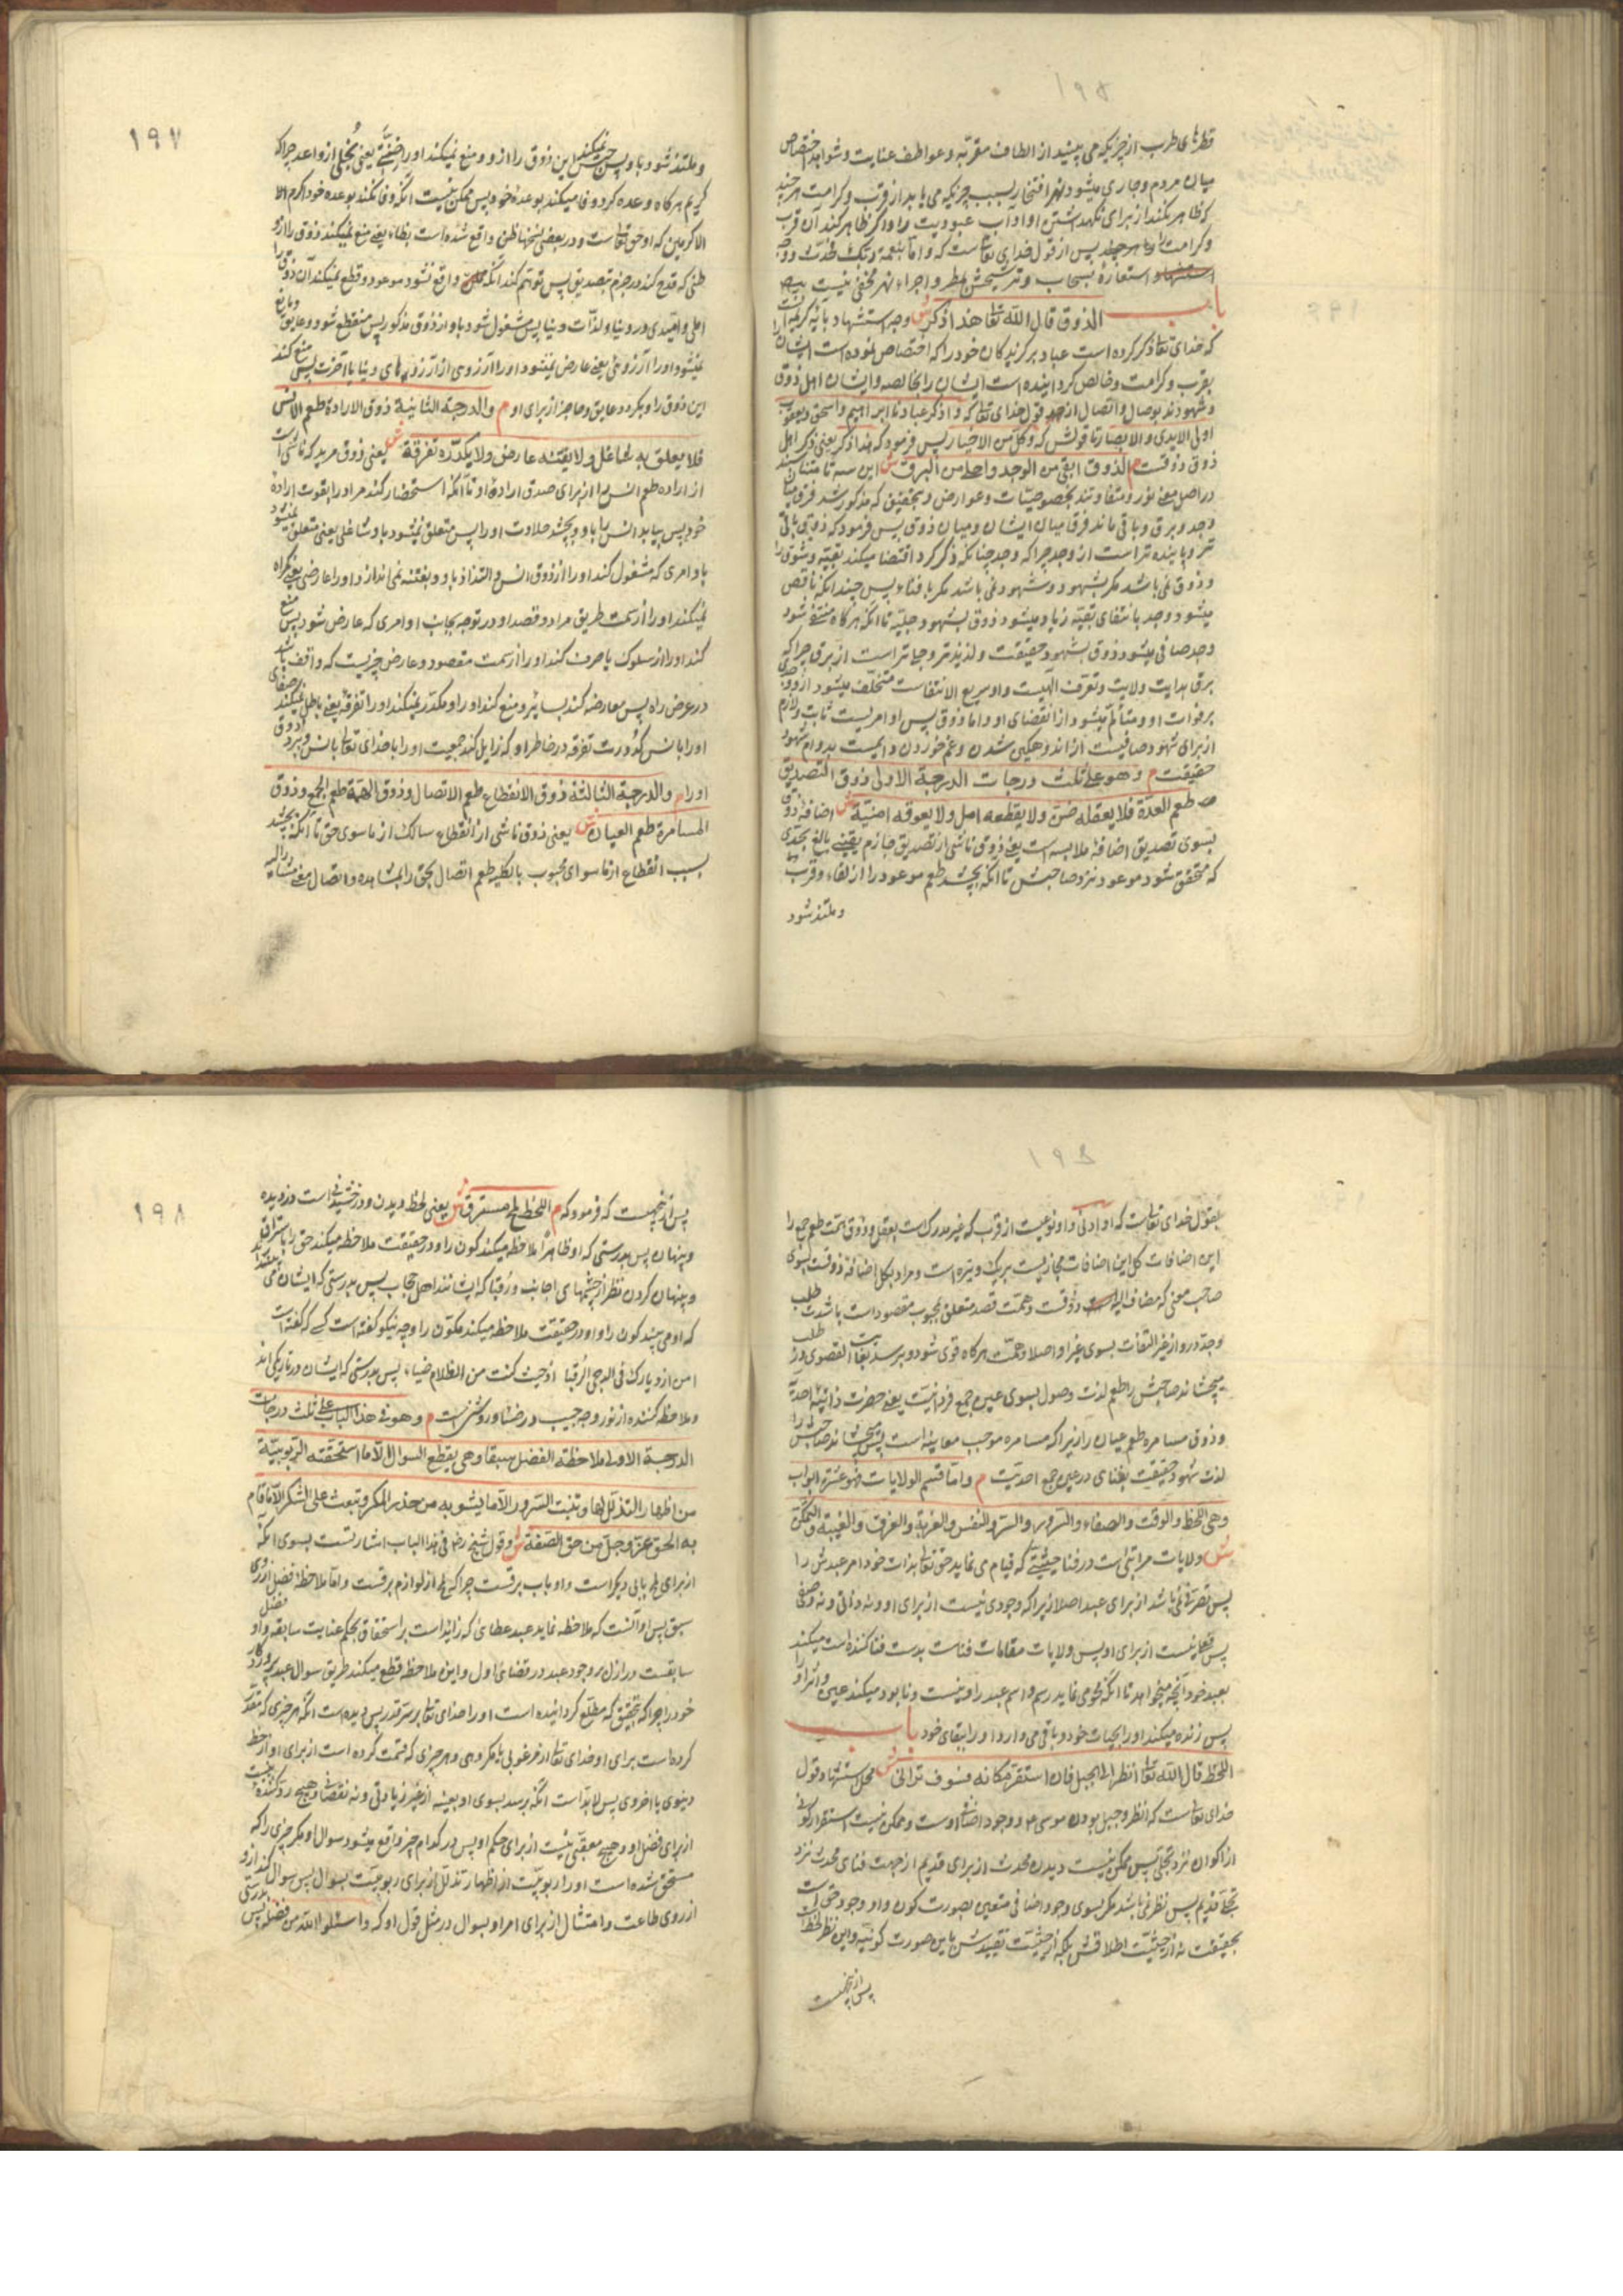 قطرهای طرب از چیزیکه می بیند از الطاف مقربه و عواطف عنایت و شواهد اختصاص
میان مردم و جاری میشود نهر افتخار بسبب چیزیکه می یابد از قرب و کرامت هر چند
که ظاهر نکند از برای نگهداشتن او آداب عبودیت را و اگر ظاهر کند آن قرب
و کرامت را پس از قول خدای تعالی است که و اما بنعمة ربک فحدث و وجه
استعاره بسحاب و ترشحش بمطر و اجراء نهر مخفی نیست
باب
الذوق قال الله تعالی هذا ذکر ش وجه استشهاد بآیه کریمه آنست
که خدای تعالی ذکر کرده است عباد برگزیدگان خود را که اختصاص نموده است ایشان را
بقرب و کرامت و خالص گردانیده است ایشان را بخالصه و ایشان اهل ذوق
و شهودند بوصال و اتصال از قول خدای تعالی که و اذکر عبادنا ابراهیم و اسحق و یعقوب
اولی الایدی و الابصار تا قولش که و کل من الاخیار پس فرمود که هذا ذکر یعنی ذکر اهل
ذوق و ذوقست م الذوق ابقی من الوجد و اجلی من البرق ش این سه تا
در اصل معنی نور و متفاوتند بخصوصیات و عوارض و بتحقیق که مذکور شد فرق میان
وجد و برق و باقی ماند فرق میان ایشان و میان ذوق پس فرمود که ذوق باقی
تر و پاینده تر است از وجد چرا که وجد چنانکه ذکر کرد اقتضا میکند بقیه و شوق را
و ذوق نمی باشد مگر بشهود و شهود نمی باشد مگر با فناء پس چندانکه ناقص
میشود وجد بانتفای بقیه زیاد میشود ذوق بشهود و جلیه تا آنکه هرگاه منتفی شود
وجد صافی میشود ذوق بشهود حقیقت و لذیذتر و حیاتر است از برق چرا که
برق بدایت ولایت و تعرف الهیست و او سریع الانتفاست متخلف میشود از
بر فوات او و متألم میشود از انقضای او و اما ذوق پس او امریست ثابت و لازم
از برای شهود و صافیست از اندوهگین شدن و غم خوردن و ایمنست بدوام شهود
حقیقت م و هو علی ثلث درجات الدرجة الاولی ذوق التصدیق
طعم العدة فلا یعقله ضن و لا یقطعه امل و لا یعوقه امنیة ش اضافه ذوق
بسوی تصدیق اضافه ملابسه است یعنی ذوقی ناشی از تصدیق جازم یقینی بالغ بحدی
که متحقق شود موعود نزد صاحبش تا آنکه بچشد طعم موعود را از لقاء و قرب
و ملتذ شود
۱۹۷
و ملتذ شود باو پس حبس نمیکند این ذوق را از او و منع نمیکند او را ضنّی یعنی بخلی از واعد چرا که
کریم هرگاه وعده کرد وفا میکند بوعده خود پس ممکن نیست آنکه وفا نکند بوعده خود اکرم الا
الاکرمین که او حق تعالی است و در بعضی نسخها ظن واقع شده است بظاء یعنی منع نمیکند ذوق را از او
ظنی که قدح کند در جزم تصدیق پس توهم کند آنکه واقع نشود موعود و قطع نمیکند آن ذوق را
املی و امیدی در دنیا و لذات دنیا پس مشغول شود باو از ذوق مذکور پس منقطع شود و عایق و مانع
نمیشود او را آرزوئی یعنی عارض نمیشود او را آرزوی از آرزوهای دنیا یا آخرت پس منع کند
این ذوق را و بگردد عایق و حاجز از برای او م و الدرجة الثانیة ذوق الارادة طعم الانس
فلا یعلق به شاغل و لا یفتنه عارض و لا یکدره تفرقة ش یعنی ذوق مرید که ناشی است
از اراده طعم انس را از برای صدق اراده او تا آنکه استحضار کند مراد را بقوت اراده
خود پس بیابد انس را باو و بچشد حلاوت او را پس متعلق نمیشود باو شاغلی یعنی متعلق نمیشود
باو امری که مشغول کند او را از ذوق انس و التذاذ باو و بفتنه نمی اندازد او را عارضی یعنی گمراه
نمیکند او را از سمت طریق مراد و قصد او در توجه بجانب او امری که عارض شود پس منع
کند او را از سلوک یا صرف کند او را از سمت مقصود و عارض چیزیست که واقف باشد
در عرض راه پس معارضه کند بسایر و منع کند او را و مکدر نمیکند او را تفرقه یعنی باطل نمیکند صفای
او را بانس کدورت تفرقه در خاطر او که زایل کند جمعیت او را با خدای تعالی بانس و ببرد ذوق
او را م و الدرجة الثالثة ذوق الانقطاع طعم الاتصال و ذوق الهمة طعم الجمع و ذوق
المسامرة طعم العیان ش یعنی ذوق ناشی از انقطاع سالک از ما سوی حق تا آنکه بچشد
بسبب انقطاع از ما سوای محبوب بالکلیه طعم اتصال بحق را بمشاهده و اتصال معنی مشار الیه
بقول خدای تعالی است که او ادنی و او نوعیست از قرب که غیر مدرک است بعقل و ذوق همت طعم جمع را
این اضافات کل این اضافات مجازیست بر یک وتیره است و مراد بکل اضافه ذوقست بسوی
صاحب معنی که مضاف الیه ذوقست و همت قصد متعلق بمحبوب مقصود است باشدت طلب
و جد در او از غیر التفات بسوی غیر او اصلا و همت هرگاه قوی شود و برسد بغایت القصوی در طلب
میچشاند صاحبش را طعم لذت وصول بسوی عین جمع فردانیت یعنی حضرت ذاتیه احدیة
و ذوق مسامره طعم عیان را زیرا که مسامره موجب معاینه است پس میچشاند صاحبش را
لذت شهود حقیقت بفنای در عین جمع احدیت م و اما قسم الولایات فهو عشرة ابواب
و هی اللحظ و الوقت و الصفاء و السرور و السر و النفس و الغربة و الغرق و الغیبة و التمکن
ش ولایات مراتبی است در فنا حیثیتی که قیام می نماید حق تعالی بذات خود امر عبدش را
پس تصرفی نمی باشد از برای عبد اصلا زیرا که وجودی نیست از برای او و نه ذاتی و نه وصفی
پس فعلی نیست از برای او پس ولایات مقامات فناست بدست فنا کننده است میکند
بعبد خود آنچه میخواهد تا آنکه محو می نماید رسم و اسم عبد را و نیست و نابود میکند عین و اثر او را
پس زنده میکند او را بحیات خود و باقی می دارد او را ببقای خود باب
اللحظ قال الله تعالی انظر الی الجبل فان استقر مکانه فسوف ترانی ش محل استشهاد قول
خدای تعالی است که انظر و جبل بودن موسی ع و وجود اضافی اوست و ممکن نیست استقرار کونی
از اکوان نزد تجلی پس ممکن نیست دیدن محدث از برای قدیم از جهت فنای محدث نزد
تجلی قدیم پس نظر نمی باشد مگر بسوی وجود اضافی متعین بصورت کون و او وجود حق است
بحقیقت نه از حیثیت اطلاقش بلکه از حیثیت تقییدش باین صورت کونیه و این نظر لحظ است
پس از اینجهت
۱۹۸
پس از اینجهت است که فرمود که م اللحظ لمح مسترق ش یعنی لحظ دیدن و درخشیدنی است دزدیده
و پنهان پس بدرستی که او ظاهرا ملاحظه میکند کون را و در حقیقت ملاحظه میکند حق را باستراق
و پنهان کردن نظر از چشمهای اجانب و رقبا که ایشانند اهل حجاب پس بدرستی که ایشان می بینند
که او می بیند کون را و او در حقیقت ملاحظه میکند مکون را و چه نیکو گفته است کسی که گفته است
امن ازدیارک فی الدجی الرقباء اذ حیث کنت من الظلام ضیاء پس بدرستی که ایشان در تاریکی اند
و ملاحظه کننده از نور وجه حبیب در ضیا و روشنی است م و هو فی هذا الباب علی ثلث درجات
الدرجة الاولی ملاحظة الفضل سبقا و هی یقطع السؤال الا ما استحقته الربوبیة
من اظهار التذلل لها و تنبت السرور الا ما یشوبه من حذر المکر و تبعث علی الشکر الا ما قام
به الحق عز و جل من حق الصفة ش و قول شیخ رض فی هذا الباب اشارتست بسوی آنکه
از برای لمح بابی دیگر است و او باب برقست چرا که لمح از لوازم برقست و اما ملاحظه فضل از روی
سبق پس او آنست که ملاحظه نماید عبد عطائی که زاید است بر استحقاق بحکم عنایت سابقه و او فضل
سابقست در ازل بر وجود عبد در قضای اول و این ملاحظه قطع میکند طریق سؤال عبد پروردگار
خود را چرا که بتحقیق که مطلع گردانیده است او را خدای تعالی بر سر قدر پس دیده است آنکه هر چیزی که مقدر
کرده است برای او خدای تعالی از مرغوبی یا مکروهی و هر چیزی که قسمت کرده است از برای او از حظ
دنیوی یا اخروی پس لابد است آنکه برسد بسوی او بعینه از غیر زیادتی و نه نقصانی و هیچ رد کننده نیست
از برای فضل او و هیچ معقبی نیست از برای حکم او پس در کدام چیز واقع میشود سؤال او مگر چیزی را که
مستحق شده است او را ربوبیت از اظهار تذلل از برای ربوبیت بسؤال پس سؤال کند از او
از روی طاعت و امتثال از برای امر او بسؤال در مثل قول او که و اسئلوا الله من فضله پس بدرستی